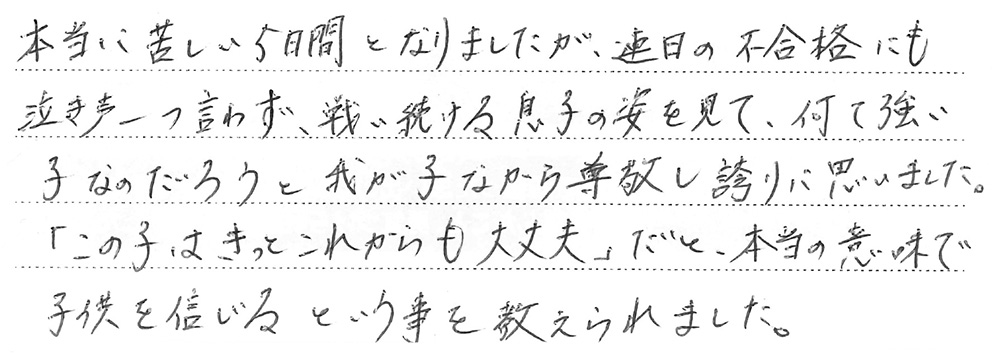 本当に苦しい5日間となりましたが、連日の不合格にも
泣き声一つ言わず、戦い続ける息子の姿を見て、何て強い
子なのだろうと我が子ながら尊敬し誇りに思いました。
「この子はきっとこれからも大丈夫」だと、本当の意味で
子供を信じるという事を教えられました。